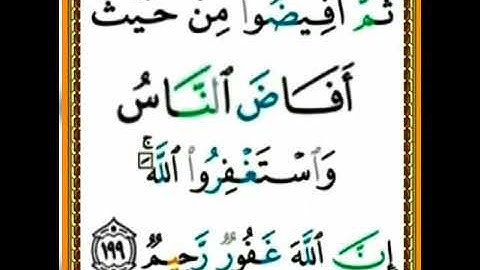 ثُمَّ أَفِيضُوا۟ مِنْ حَيْثُ
أَفَاضَ ٱلنَّاسُ
وَٱسْتَغْفِرُوا۟ ٱللَّهَ ۚ
إِنَّ ٱللَّهَ غَفُورٌ رَّحِيمٌ ١٩٩